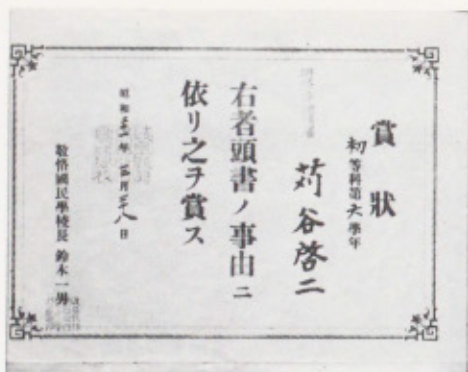 賞狀
初等科第六學年
苅谷啓二
右者頭書ノ事由ニ
依リ之ヲ賞ス
敬悟國民學校長 鈴木一男